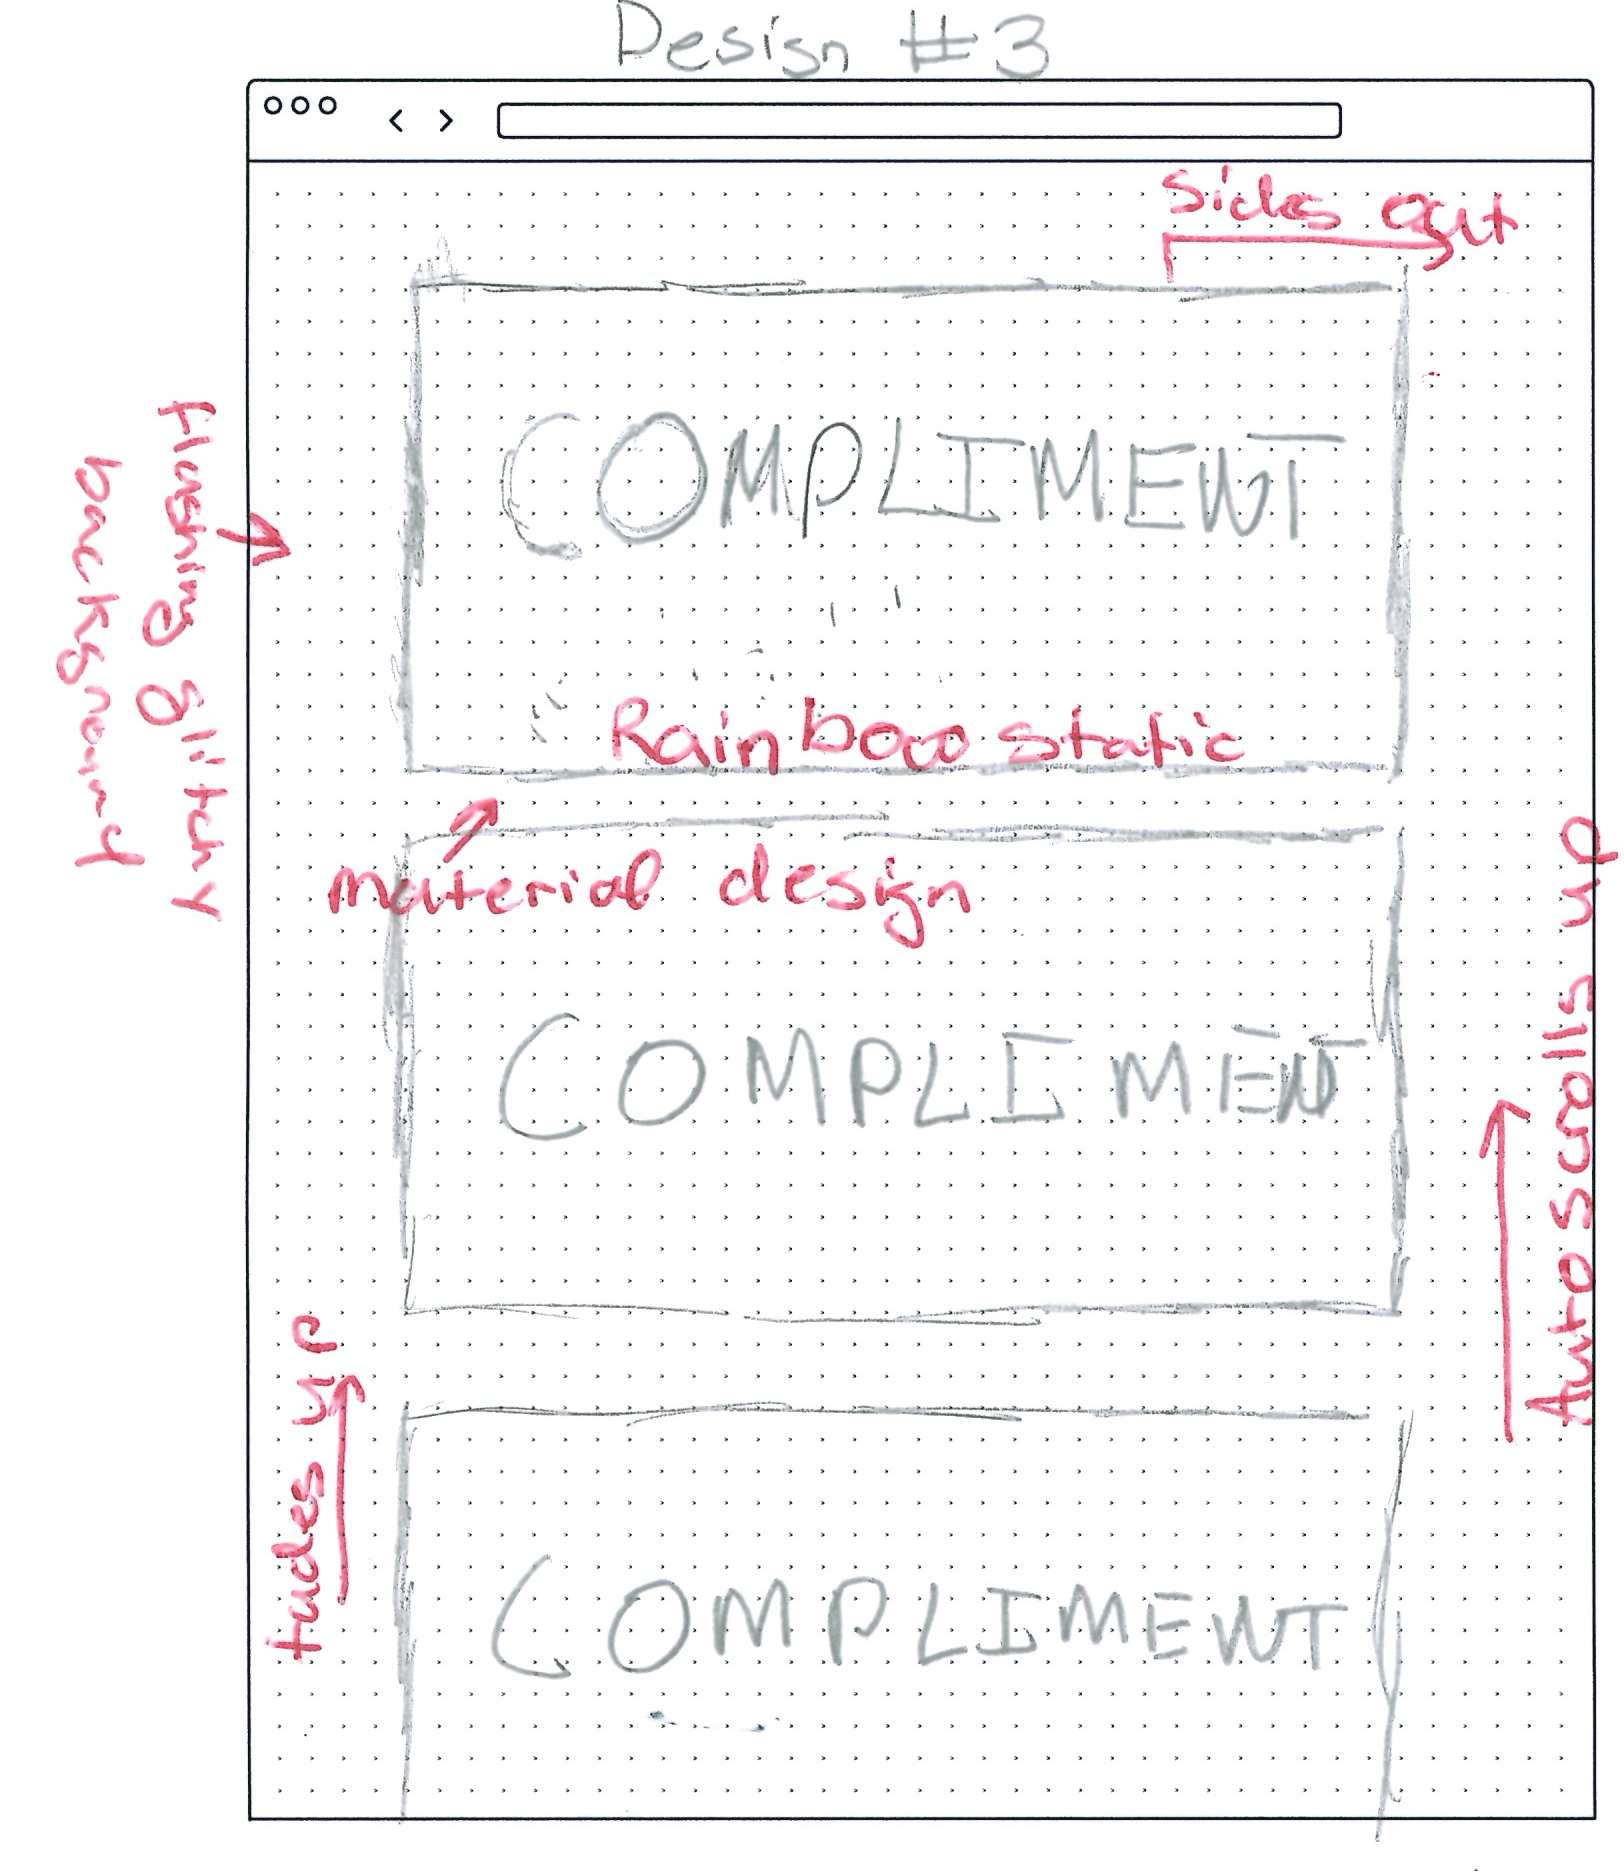 Design #3
sides out
COMPLIMENT
Flashing glitchy
background
Rainbow static
material design
COMPLIMENT
Auto scrolls up
fades up
COMPLIMENT